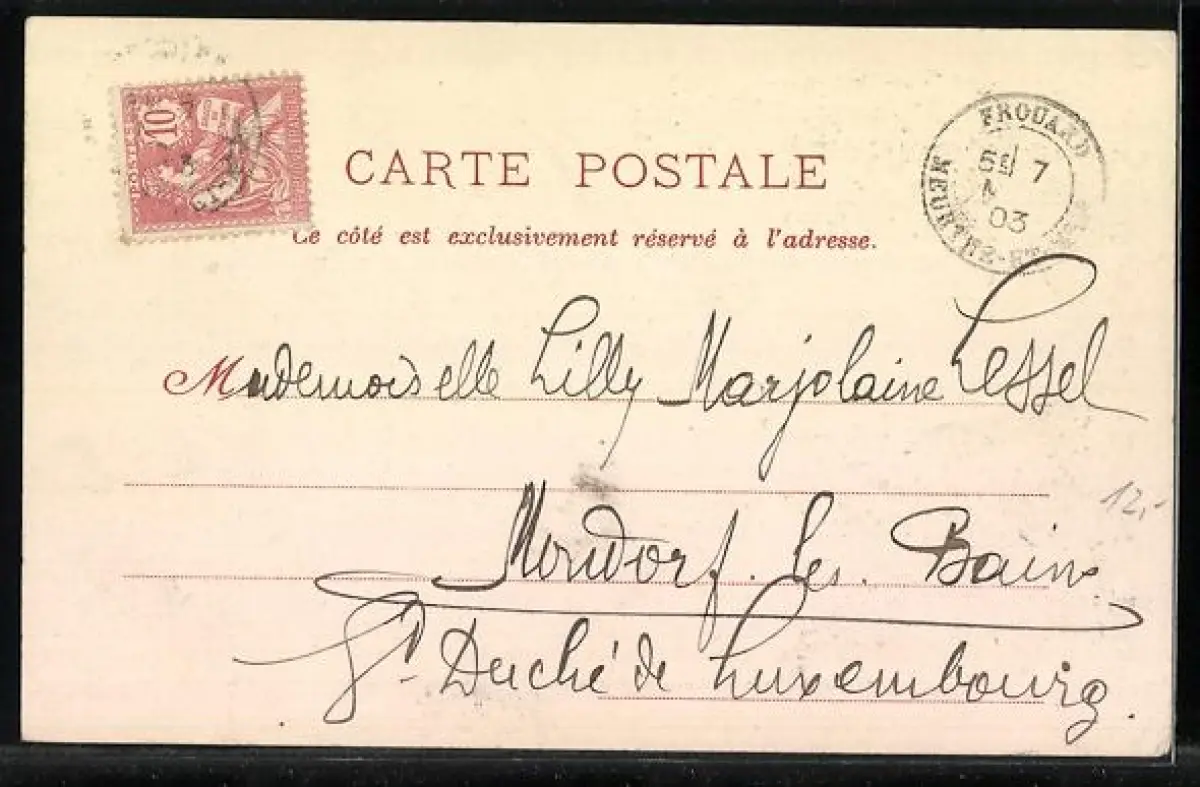 10
POSTES
CARTE POSTALE
Ce côté est exclusivement réservé à l'adresse.
FROUARD
7
03
MEURTHE-ET-
Mademoiselle Lilly Marjolaine Lessel
12,-
Mondorf. les. Bains
Gd. Duché de Luxembourg.